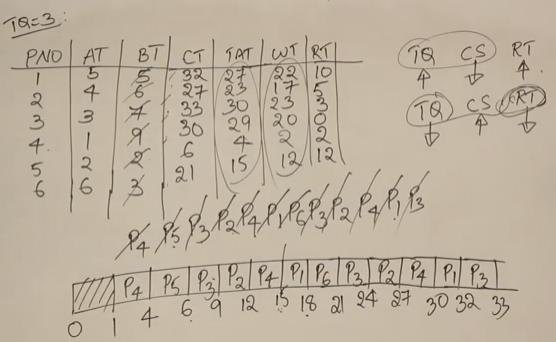 TQ=3
PNO AT BT CT TAT WT RT
1 5 5 32 27 22 10
2 4 6 27 23 17 5
3 3 7 33 30 23 3
4 1 9 30 29 20 0
5 2 2 6 4 2 2
6 6 3 21 15 12 12
TQ CS RT
TQ CS RT
P4 P5 P3 P2 P4 P1 P6 P3 P2 P4 P1 P3
P4 P5 P3 P2 P4 P1 P6 P3 P2 P4 P1 P3
0 1 4 6 9 12 15 18 21 24 27 30 32 33